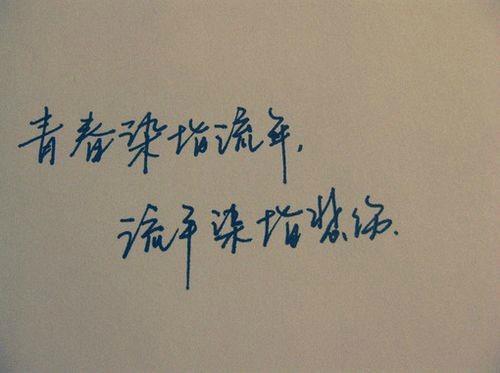 青春染指流年，
流年染指